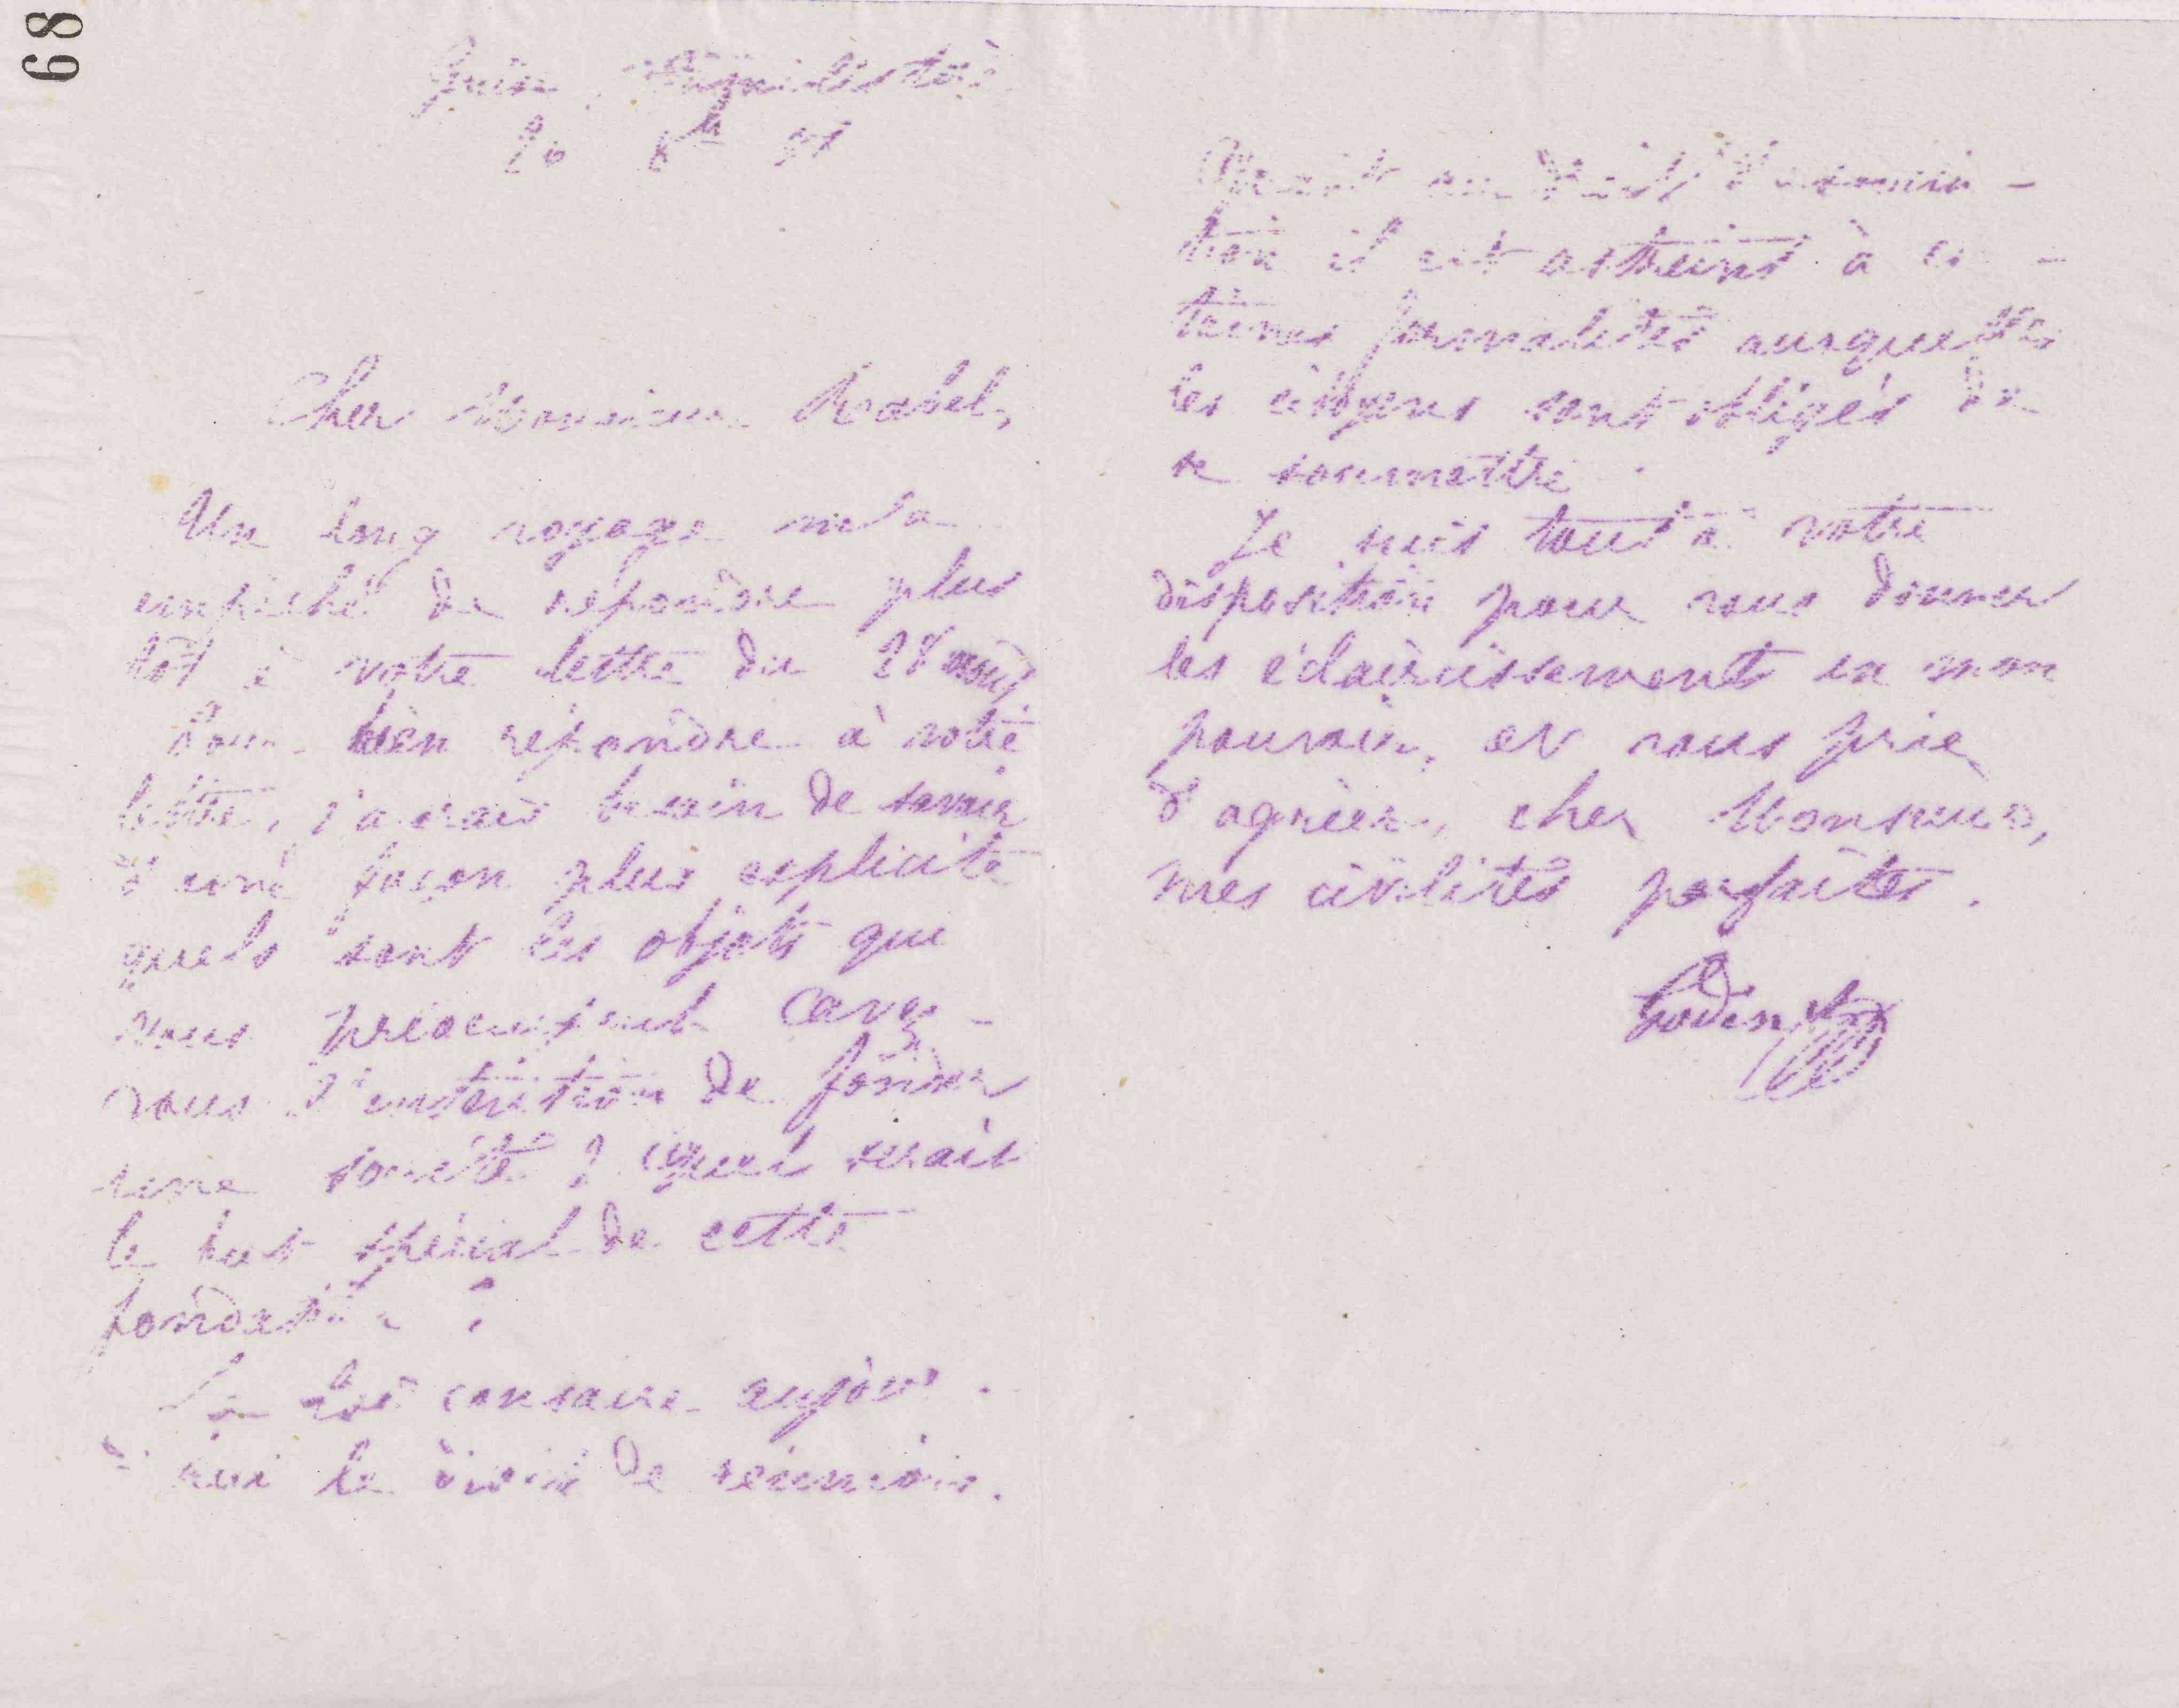 68
Guise Familistère
20 8bre 81
Cher Monsieur Krabel,
Un long voyage m'a
empêché de répondre plus
tôt à votre lettre du 28 août
Pour bien répondre à votre
lettre, j'aurais besoin de savoir
d'une façon plus explicite
quels sont les objets qui
vous préoccupent Avez-
vous l'intention de fonder
une société ? Quel serait
le but spécial de cette
fondation ?
La loi consacre aujour-
d'hui le droit de réunion.
Quant au droit d'association
tion il est astreint à cer-
taines formalités auxquelles
les citoyens sont obligés de
se soumettre.
Je suis tout à votre
disposition pour vous donner
les éclaircissements en mon
pouvoir, et vous prie
d'agréer, cher Monsieur,
mes civilités parfaites.
Godin